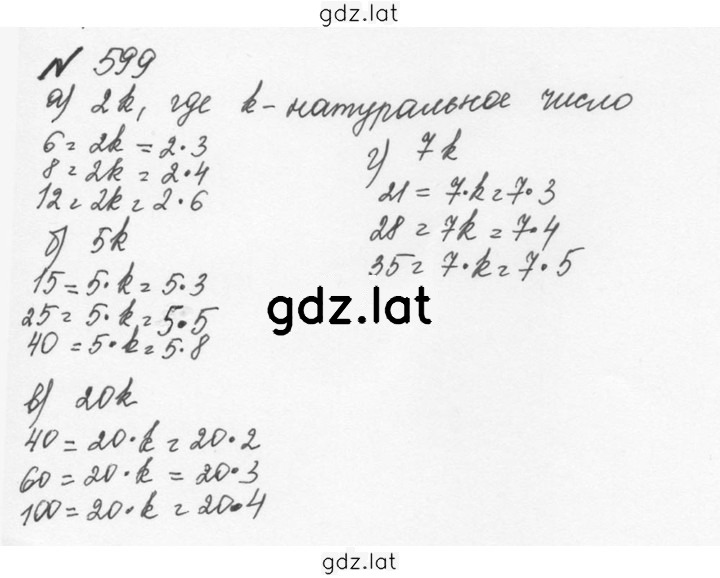 gdz.lat
№ 599
а) 2k, где k - натуральное число
6 = 2k = 2·3
8 = 2k = 2·4
12 = 2k = 2·6
б) 5k
15 = 5·k = 5·3
25 = 5·k = 5·5
40 = 5·k = 5·8
в) 20k
40 = 20·k = 20·2
60 = 20·k = 20·3
100 = 20·k = 20·4
г) 7k
21 = 7·k = 7·3
28 = 7k = 7·4
35 = 7·k = 7·5
gdz.lat
gdz.lat